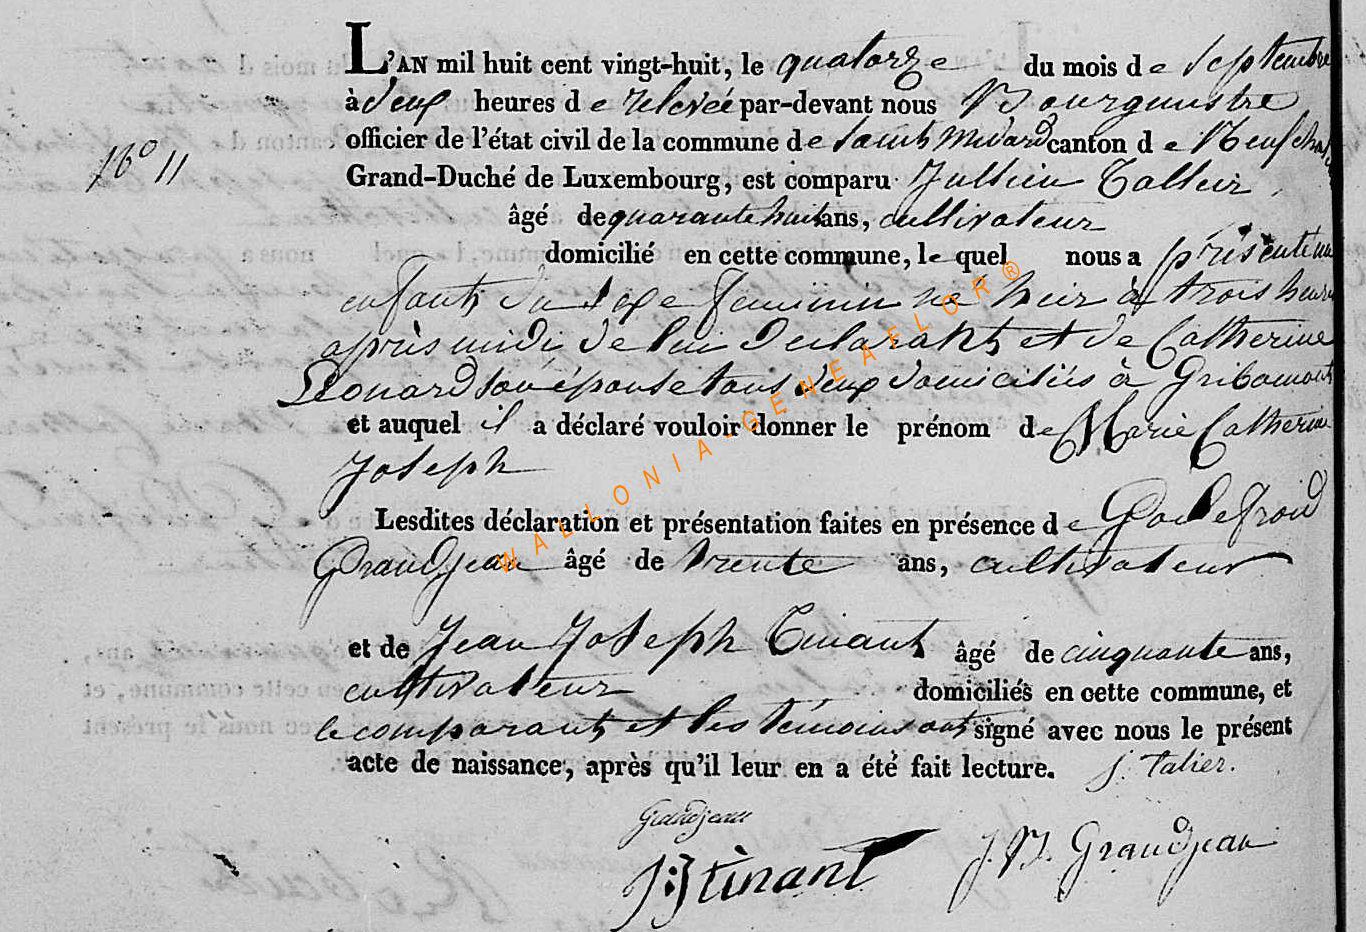 L'AN mil huit cent vingt-huit, le quatorze du mois de Septembre
à deux heures de relevée par-devant nous Bourgmestre
officier de l'état civil de la commune de Saint Medard canton de Neufchat
N° 11
Grand-Duché de Luxembourg, est comparu Jullien Tallier
âgé de quarante huit ans, cultivateur
domicilié en cette commune, le quel nous a présenté un
enfant du sexe feminin né hier à trois heure
après midi de lui declarant et de Catherine
Léonard son épouse tous deux domiciliés à Gribomont
et auquel il a déclaré vouloir donner le prénom de Marie Catherine
Joseph
Lesdites déclaration et présentation faites en présence de Godefroid
Grandjean âgé de trente ans, cultivateur
et de Jean Joseph Tinant âgé de cinquante ans,
cultivateur domiciliés en cette commune, et
le comparant et les témoins ont signé avec nous le présent
acte de naissance, après qu'il leur en a été fait lecture. J. Talier.
Grandjean
J:J tinant J. B. Grandjean
WALLONIA-GENEAFLOR®